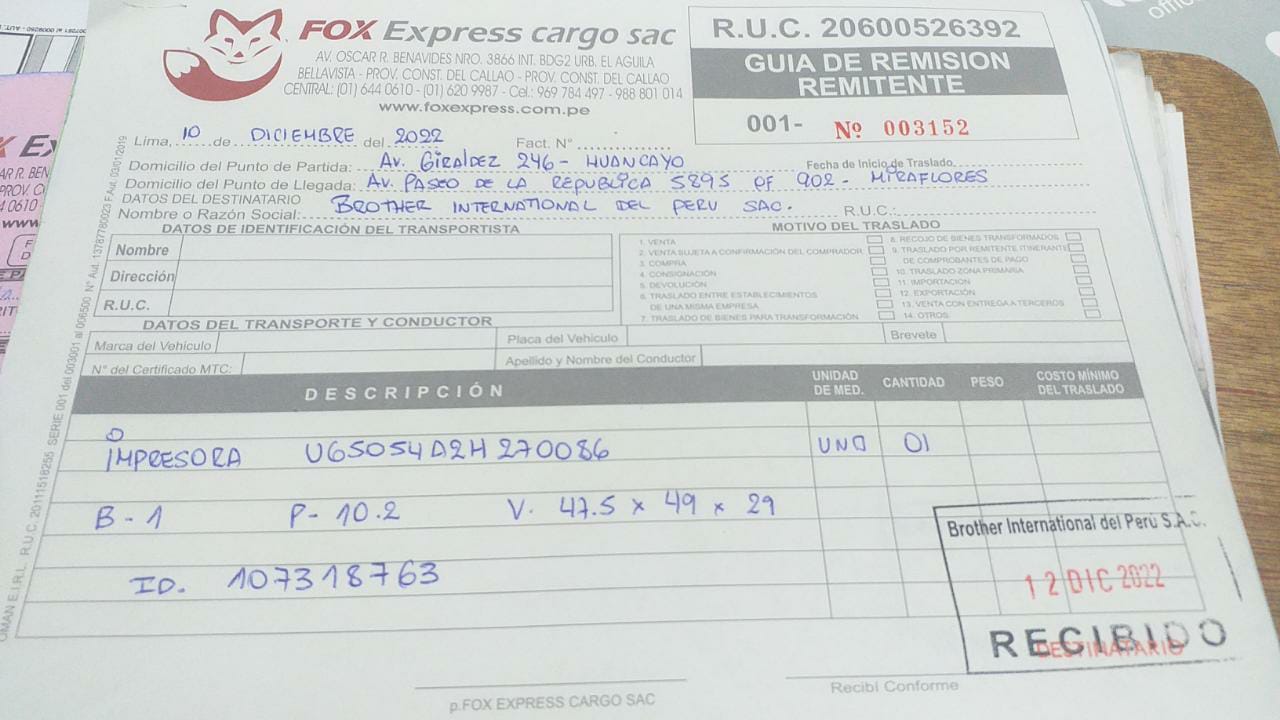 FOX Express cargo sac
AV. OSCAR R. BENAVIDES NRO. 3866 INT. BDG2 URB. EL AGUILA
BELLAVISTA - PROV. CONST. DEL CALLAO - PROV. CONST. DEL CALLAO
CENTRAL: (01) 644 0610 - (01) 620 9987 - Cel.: 969 784 497 - 988 801 014
www.foxexpress.com.pe
R.U.C. 20600526392
GUIA DE REMISION
REMITENTE
001- Nº 003152
Lima, 10 de DICIEMBRE del 2022 Fact. N°
Domicilio del Punto de Partida: Av. GIRALDEZ 246 - HUANCAYO Fecha de Inicio de Traslado
Domicilio del Punto de Llegada: AV. PASEO DE LA REPUBLICA 5895 OF 902 - MIRAFLORES
DATOS DEL DESTINATARIO
Nombre o Razón Social: BROTHER INTERNATIONAL DEL PERU SAC. R.U.C.:
DATOS DE IDENTIFICACIÓN DEL TRANSPORTISTA
Nombre
Dirección
R.U.C.
MOTIVO DEL TRASLADO
1. VENTA
2. VENTA SUJETA A CONFIRMACIÓN DEL COMPRADOR
3. COMPRA
4. CONSIGNACIÓN
5. DEVOLUCIÓN
6. TRASLADO ENTRE ESTABLECIMIENTOS
DE UNA MISMA EMPRESA
7. TRASLADO DE BIENES PARA TRANSFORMACIÓN
8. RECOJO DE BIENES TRANSFORMADOS
9. TRASLADO POR REMITENTE ITINERANTE
DE COMPROBANTES DE PAGO
10. TRASLADO ZONA PRIMARIA
11. IMPORTACION
12. EXPORTACIÓN
13. VENTA CON ENTREGA A TERCEROS
14. OTROS
DATOS DEL TRANSPORTE Y CONDUCTOR
Marca del Vehículo Placa del Vehículo Brevete
N° del Certificado MTC: Apellido y Nombre del Conductor
DESCRIPCIÓN UNIDAD DE MED. CANTIDAD PESO COSTO MÍNIMO DEL TRASLADO
IMPRESORA U65054A2H270086 UNO 01
B - 1 P- 10.2 V. 47.5 x 49 x 29
ID. 107318763
Brother International del Perú S.A.C.
12 DIC 2022
RECIBIDO
DESTINATARIO
p.FOX EXPRESS CARGO SAC
Recibí Conforme